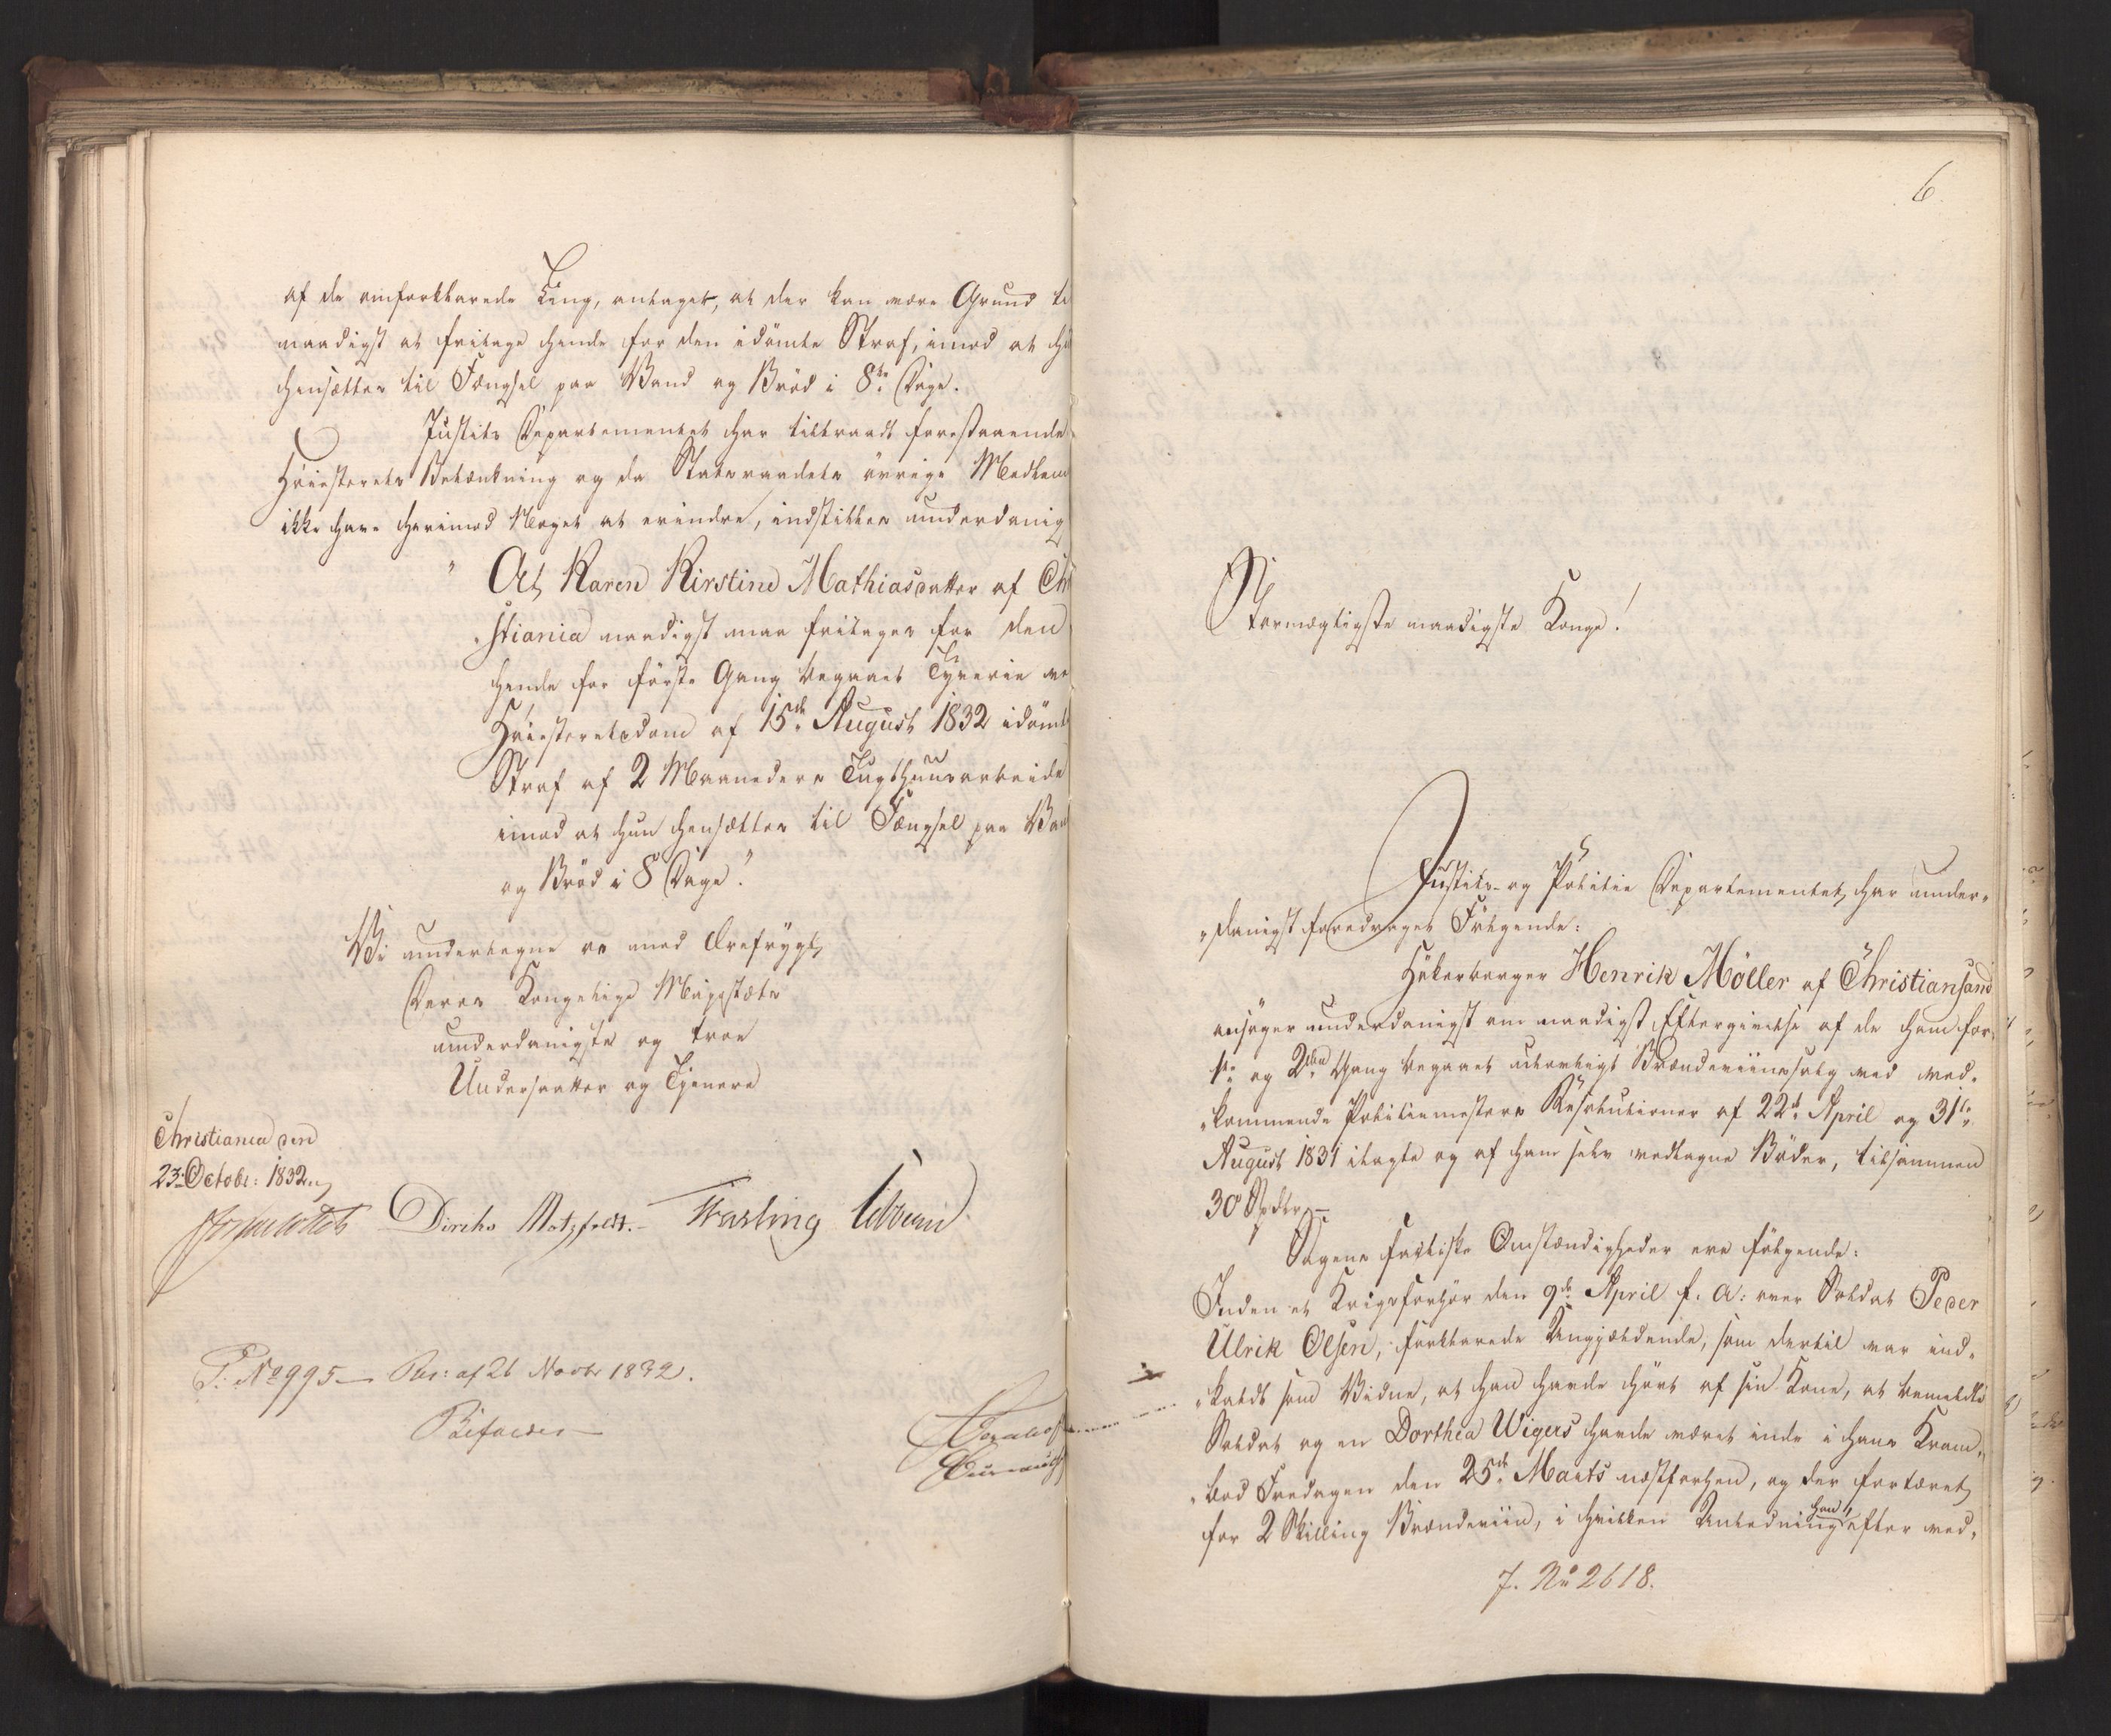 af de omforklarede Ting, antaget, at der kan være Grund ti
naadigst at fritage hende for den idömte Straf, imod at hu
hensættes til Fængsel paa Vand og Bröd i 8te Dage.
Justits Departementet har tiltraadt forestaaende
Höiesterets Betænkning og da Statsraadets övrige Medlem
ikke have herimod Noget at erindre, indstilles underdanig
" At Karen Kirstine Mathiasdatter af Chri
"stiania naadigst maa fritages for den
hende for förste Gang begaaet Tyverie ve
Höiesteretsdom af 15de August 1832 idömt
Straf af 2 Maaneders Tugthuusarbeide
imod at hun hensættes til Fængsel paa Van
og Bröd i 8 Dage."
Vi undertegne os med Ærefrygt
Deres Kongelige Majestæts
underdanigste og troe
Undersaatter og Tjenere
Christiania den
23. Octobr: 1832.
Diriks Motzfeldt. Fasting Vibe
P: No 995 — Res: af 26 Novbr 1832.
Bifaldes —
6.
Stormægtigste naadigste Konge!
Justits- og Politie Departementet har under-
"danigst foredraget Fölgende:
Hökerborger Henrik Möller af Christiansand
ansöger underdanigst om naadigst Eftergivelse af de ham for
1ste og 2den Gang begaaet ulovligt Brændeviinssalg ved ved-
"kommende Politiemesters Resolutioner af 22de April og 31te
August 1831 ilagte og af ham selv vedtagne Böder, tilsammen
30 Spdlr. —
Sagens factiske Omstændigheder ere fölgende:
Inden et Krigsforhör den 9de April f. A: over Soldat Peder
Ulrik Olsen, forklarede Angjældende, som dertil var ind-
"kaldt som Vidne, at han havde hört af sin Kone, at bemeldte
Soldat og en Dorthea Wigers havde været inde i hans Kram-
"bod Fredagen den 25de Marts næstforhen, og der fortæret
for 2 Skilling Brændeviin, i hvilken Anledning han efter ved-
J. No 2618.